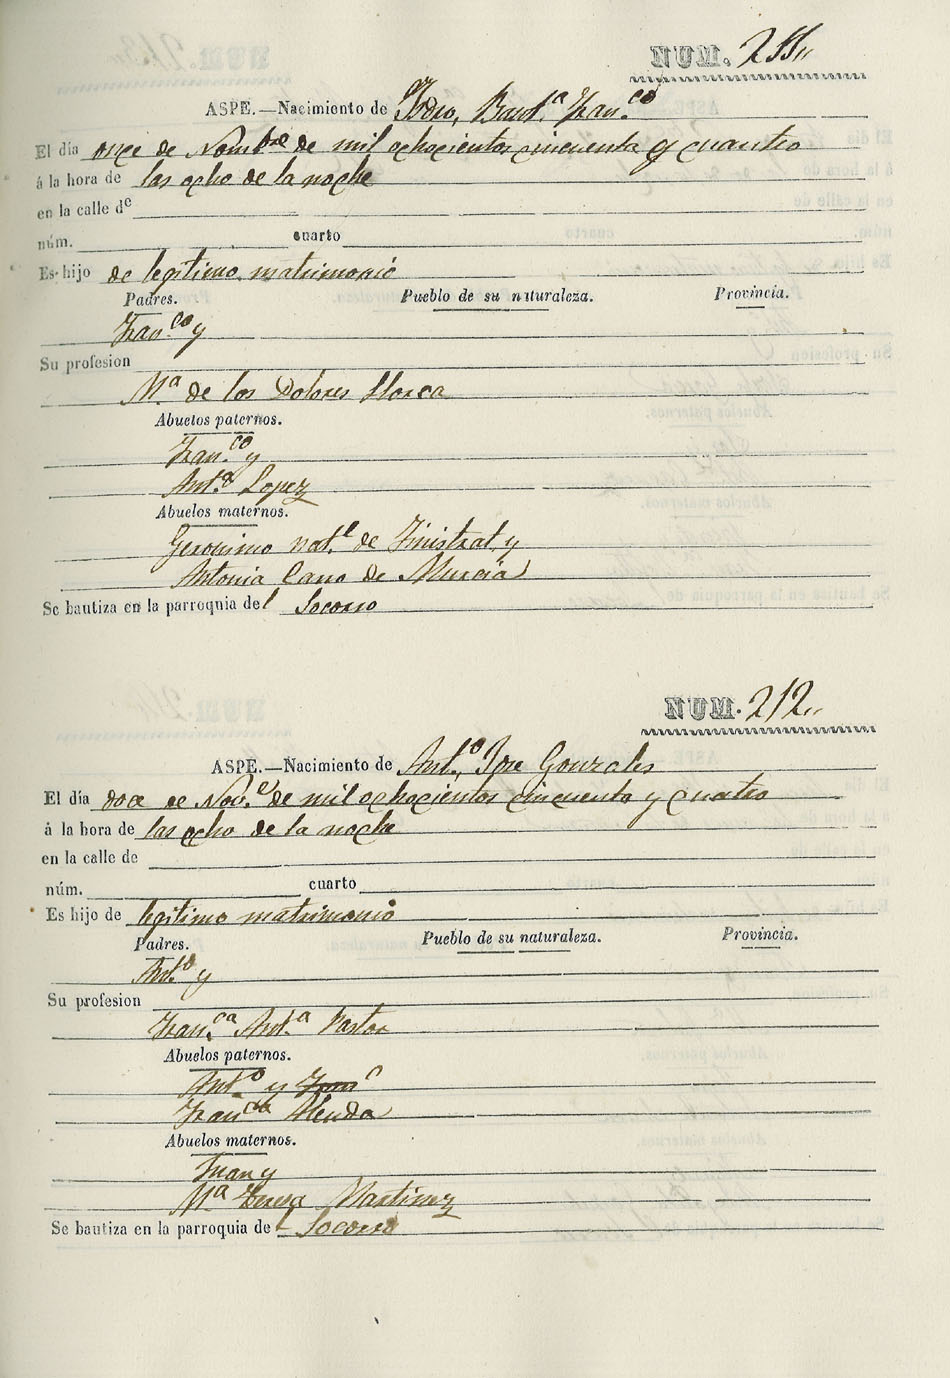 NUM. 211
ASPE.—Nacimiento de Pedro, Baut.ª Fran.co
El día once de Nombre de mil ochocientos cincuenta y cuantro
á la hora de las ocho de la noche
en la calle de
núm. cuarto
Es hijo de legitimo matrimonio
Padres. Pueblo de su naturaleza. Provincia.
Fran.co y
Su profesion
M.ª de los Dolores Llorca
Abuelos paternos.
Fran.co y
Ant.ª Lopez
Abuelos maternos.
Geronimo nat.l de Finistrat y
Antonia Cano de Murcia
Se bautiza en la parroquia del Socorro
NUM. 212
ASPE.—Nacimiento de Ant.o Jose Gonzales
El día doce de Nov.e de mil ochocientos cincuenta y cuatro
á la hora de las ocho de la noche
en la calle de
núm. cuarto
Es hijo de legitimo matrimonio
Padres. Pueblo de su naturaleza. Provincia.
Ant.o y
Su profesion
Fran.ca Ant.ª Pastor
Abuelos paternos.
Ant.o y
Fran.ca Alenda
Abuelos maternos.
Juan y
M.ª Teresa Martinez
Se bautiza en la parroquia del Socorro